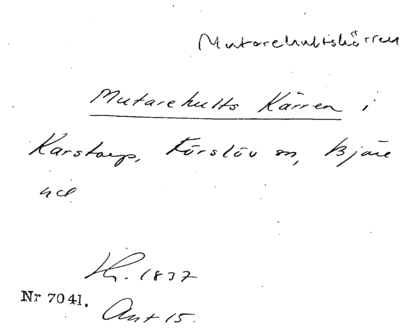 Mutarehultskärren
Mutarehults Kärren i
Karstorp, Förslöv sn, Bjäre
hd
Lh. 1837
Nr 7041.
Akt 15.